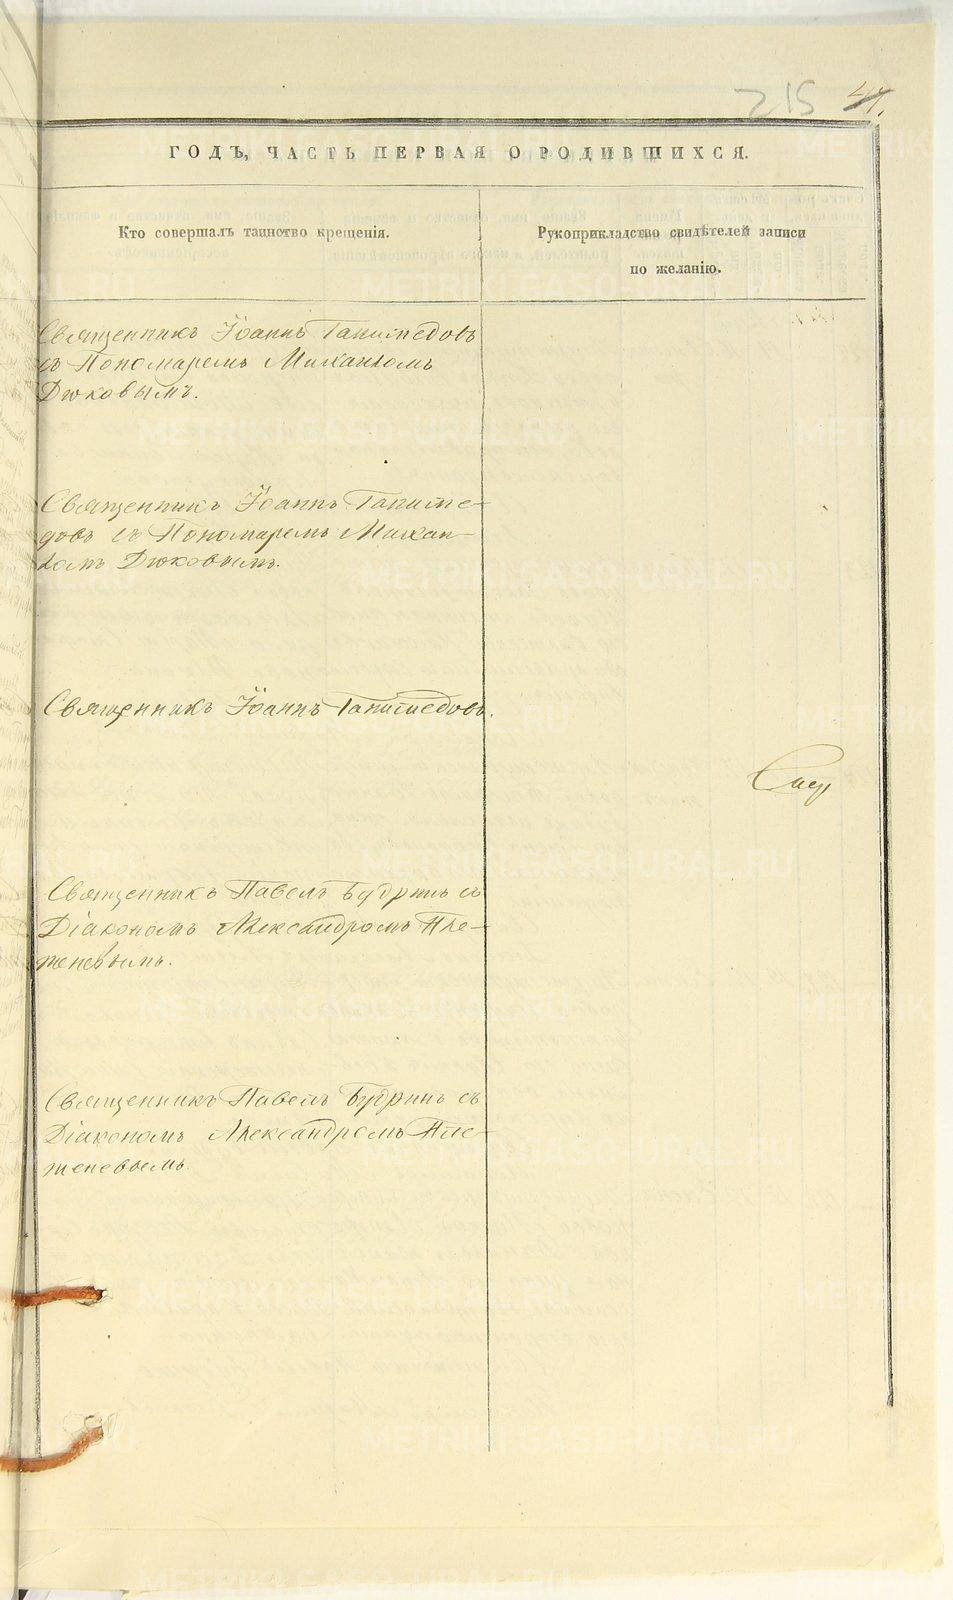 215 47.
ГОДЪ, ЧАСТЬ ПЕРВАЯ О РОДИВШИХСЯ.
Кто совершалъ таинство крещенія.
Рукоприкладство свидѣтелей записи
по желанію.
Священникъ Іоаннъ Ганимедовъ
съ Пономаремъ Михаиломъ
Дюковымъ.
Священникъ Іоаннъ Ганиме-
довъ съ Пономаремъ Михаи-
ломъ Дюковымъ.
Священникъ Іоаннъ Ганимедовъ.
Священникъ Павелъ Будринъ съ
Діакономъ Александромъ Пле-
теневымъ.
Священникъ Павелъ Будринъ съ
Діакономъ Александромъ Пле-
теневымъ.
METRIKI.GASO-URAL.RU